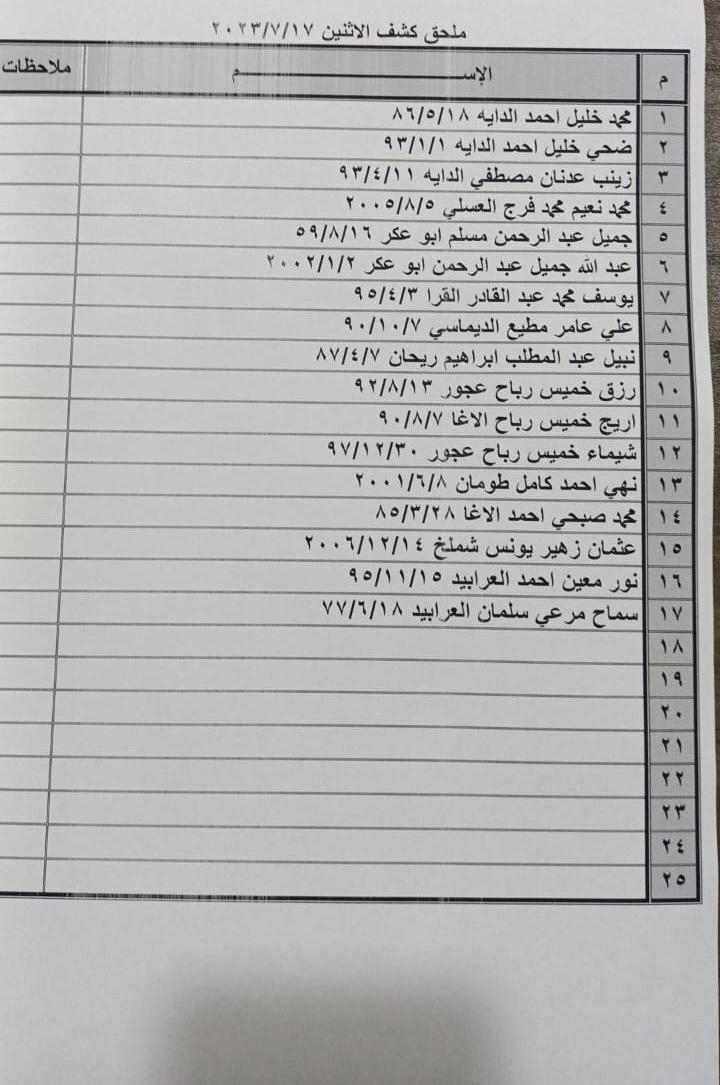 ملحق كشف الاثنين ٢٠٢٣/٧/١٧
م الإســـم ملاحظات
١ محمد خليل احمد الدايه ٨٦/٥/١٨
٢ ضحي خليل احمد الدايه ٩٣/١/١
٣ زينب عدنان مصطفي الدايه ٩٣/٤/١١
٤ محمد نعيم محمد فرج العسلي ٢٠٠٥/٨/٥
٥ جميل عبد الرحمن مسلم ابو عكر ٥٩/٨/١٦
٦ عبد الله جميل عبد الرحمن ابو عكر ٢٠٠٢/١/٢
٧ يوسف محمد عبد القادر القرا ٩٥/٤/٣
٨ علي عامر مطيع الديماسي ٩٠/١٠/٧
٩ نبيل عبد المطلب ابراهيم ريحان ٨٧/٤/٧
١٠ رزق خميس رباح عجور ٩٢/٨/١٣
١١ اريج خميس رباح الاغا ٩٠/٨/٧
١٢ شيماء خميس رباح عجور ٩٧/١٢/٣٠
١٣ نهي احمد كامل طومان ٢٠٠١/٦/٨
١٤ محمد صبحي احمد الاغا ٨٥/٣/٢٨
١٥ عثمان زهير يونس شملخ ٢٠٠٦/١٢/١٤
١٦ نور معين احمد العرابيد ٩٥/١١/١٥
١٧ سماح مرعي سلمان العرابيد ٧٧/٦/١٨
١٨
١٩
٢٠
٢١
٢٢
٢٣
٢٤
٢٥